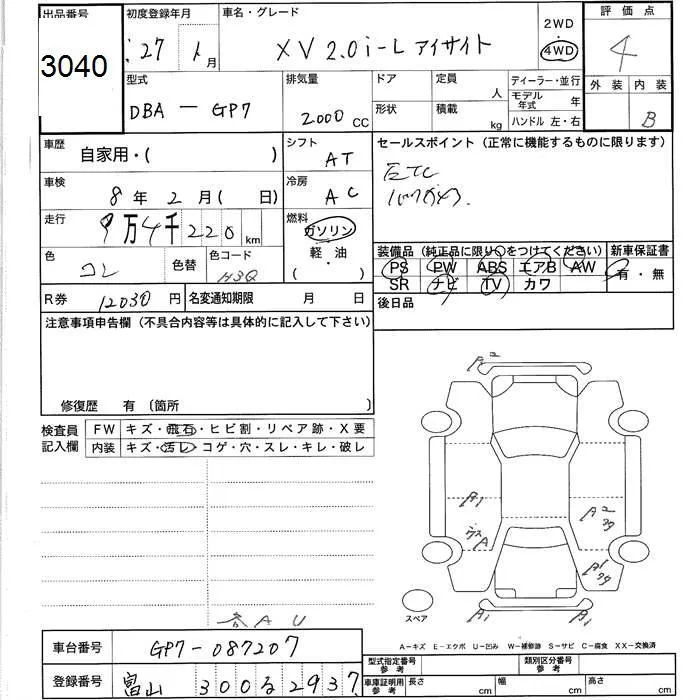 出品番号 3040
初度登録年月 27 年 1 月
車名・グレード XV 2.0i-L アイサイト
2WD ・ 4WD
評価点 4
外装 内装 B
型式 DBA - GP7
排気量 2000 CC
ドア 定員 人
形状 積載 kg
ディーラー・並行
モデル年式 年
ハンドル 左・右
車歴 自家用・( )
シフト AT
セールスポイント(正常に機能するものに限ります)
ETC
車検 8年 2月( 日)
冷房 AC
走行 9万4千220 km
燃料 ガソリン ・ 軽油 ( )
色 コン 色替 色コード H3Q
装備品(純正品に限り○をつけてください) 新車保証書
PS PW ABS エアB AW 有・無
SR ナビ TV カワ
R券 12030 円 名変通知期限 月 日
後日品
注意事項申告欄(不具合内容等は具体的に記入して下さい)
修復歴 有〔箇所 〕
検査員記入欄 FW キズ・飛石・ヒビ割・リペア跡・X要
内装 キズ・汚レ・コゲ・穴・スレ・キレ・破レ
A2
A1
A2
A
A1
A1
A1
スペア
AU
A-キズ E-エクボ U-凹み W-補修跡 S-サビ C-腐食 XX-交換済
車台番号 GP7-087207
型式指定番号 参考 類別区分番号 参考
登録番号 富山 300 る 2937
車庫証明用 参考 長さ cm 幅 cm 高さ cm